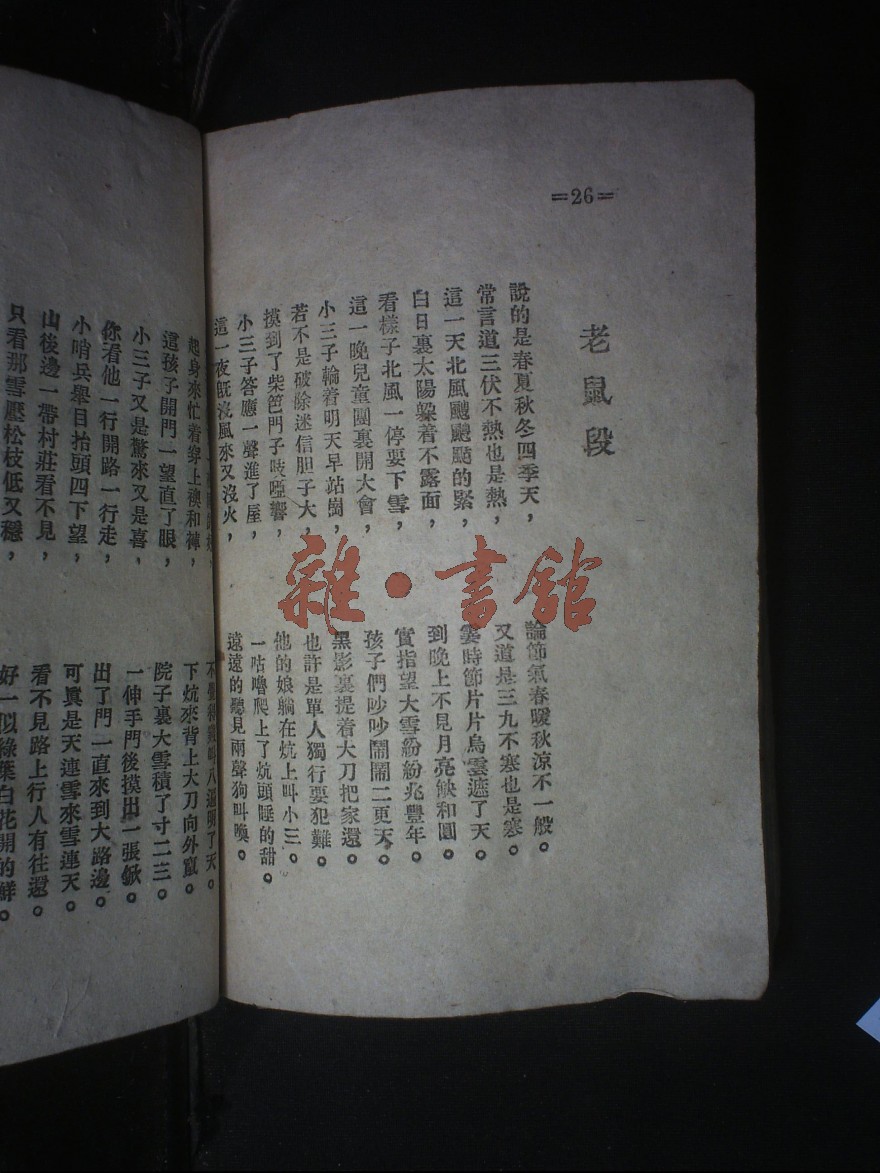 =26=
老鼠段
說的是春夏秋冬四季天，
論節氣春暖秋涼不一般。
常言道三伏不熱也是熱，
又道是三九不寒也是寒。
這一天北風颼颼颳的緊，
霎時節片片烏雲遮了天。
白日裏太陽躱着不露面，
到晚上不見月亮缺和圓。
看樣子北風一停要下雪，
實指望大雪紛紛兆豐年。
這一晚兒童團裏開大會，
孩子們吵吵鬧鬧二更天。
小三子輪着明天早站崗，
黑影裏提着大刀把家還。
若不是破除迷信胆子大，
也許是單人獨行要犯難。
摸到了柴笆門子吱啞響，
他的娘躺在炕上叫小三。
小三子答應一聲進了屋，
一咕嚕爬上了炕頭睡的甜。
這一夜旣沒風來又沒火，
遠遠的聽見兩聲狗叫喚。
了天。
起身來忙着穿上襖和褲，
下炕來背上大刀向外竄。
這孩子開門一望直了眼，
院子裏大雪積了寸二三。
小三子又是驚來又是喜，
一伸手門後摸出一張鍁。
你看他一行開路一行走，
出了門一直來到大路邊。
小哨兵舉目抬頭四下望，
可眞是天連雪來雪連天。
山後邊一帶村莊看不見，
看不見路上行人有往還。
只看那雪壓松枝低又穩，
好一似綠葉白花開的鮮。
雜·書館